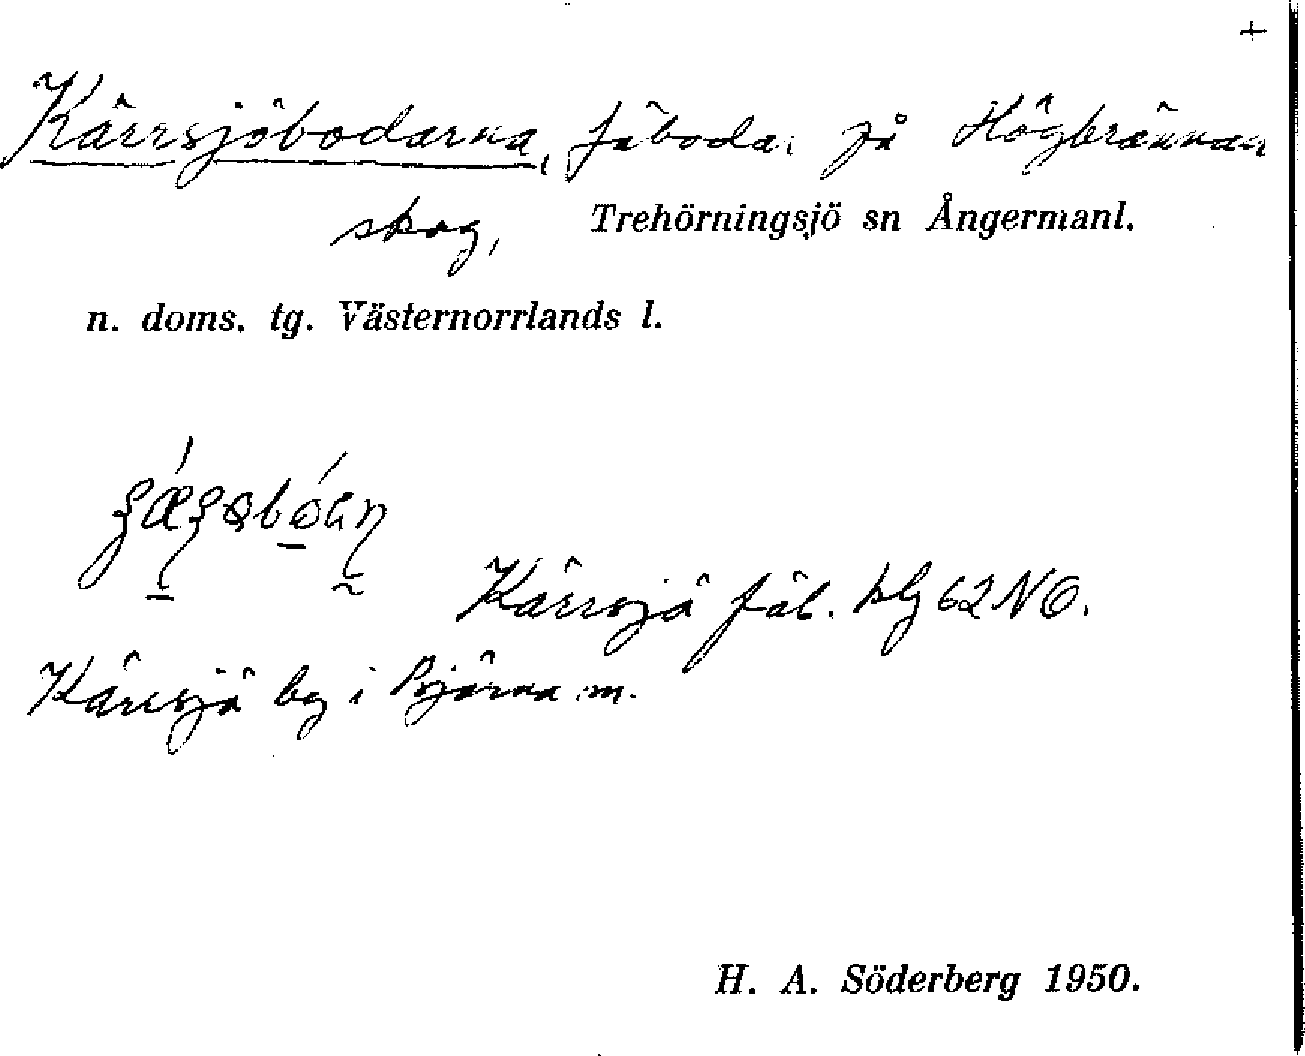 +
Kärrsjöbodarna, fäbodar på Högbrännan
skog, Trehörningsjö sn Ångermanl.
n. doms. tg. Västernorrlands l.
Kärrsjö fäb. blg 62 NO.
Kärrsjö by i Björna sn.
H. A. Söderberg 1950.